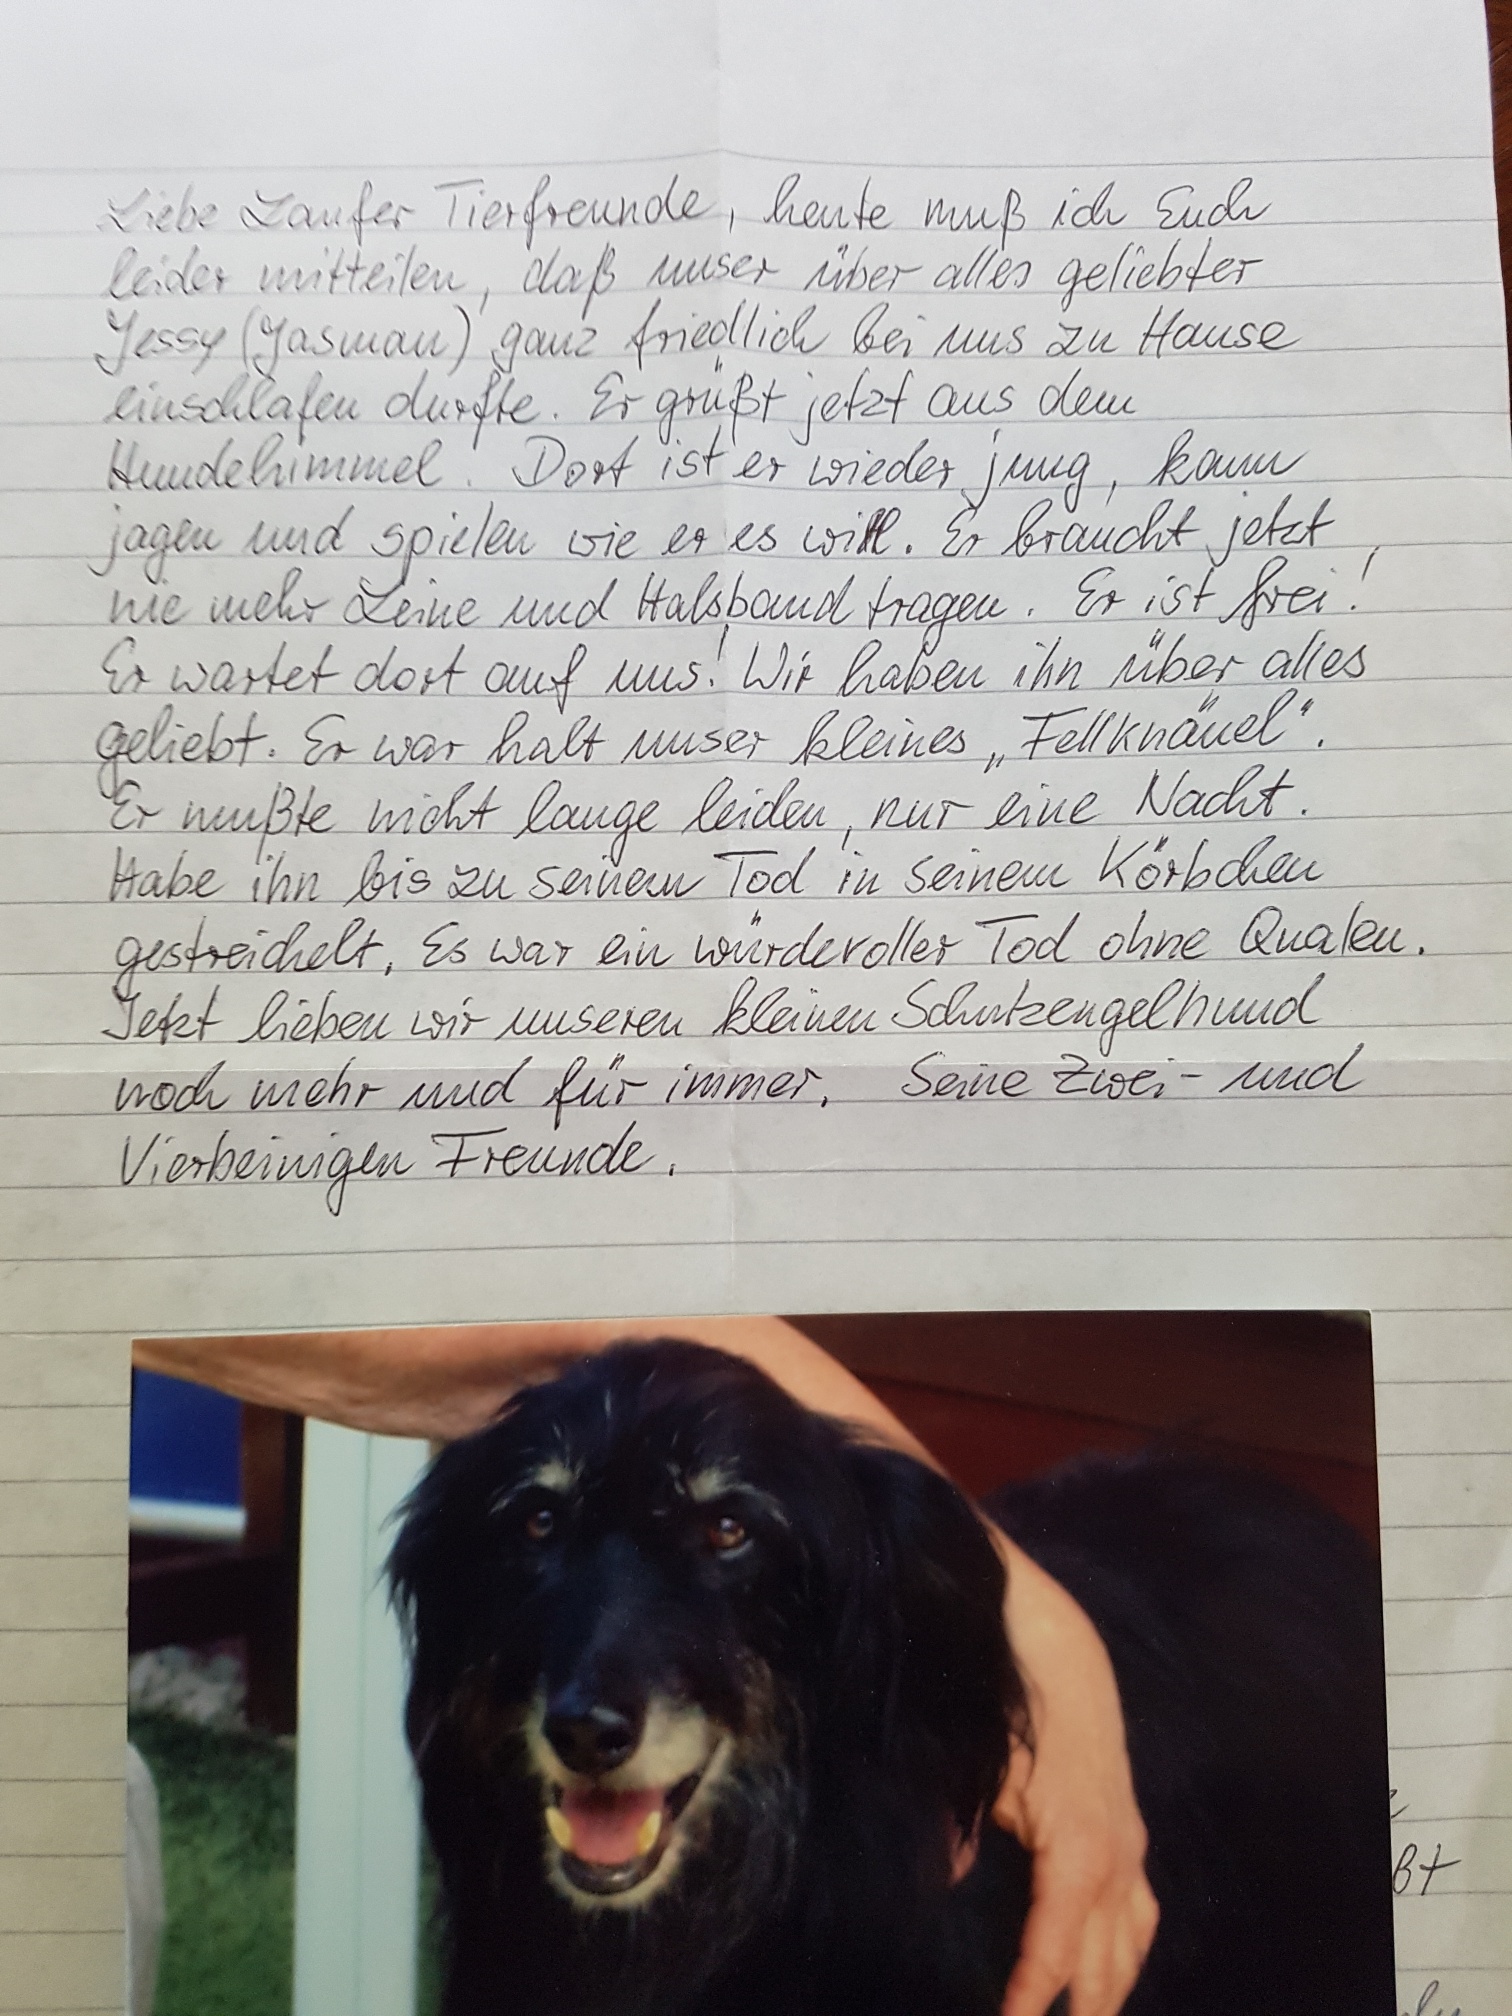 Liebe Laufer Tierfreunde, heute muß ich Euch
leider mitteilen, daß unser über alles geliebter
Jessy (Jasman) ganz friedlich bei uns zu Hause
einschlafen durfte. Er grüßt jetzt aus dem
Hundehimmel. Dort ist er wieder jung, kann
jagen und spielen wie er es will. Er braucht jetzt
nie mehr Leine und Halsband tragen. Er ist frei!
Er wartet dort auf uns! Wir haben ihn über alles
geliebt. Er war halt unser kleines „Fellknäuel".
Er mußte nicht lange leiden, nur eine Nacht.
Habe ihn bis zu seinem Tod in seinem Körbchen
gestreichelt. Es war ein würdevoller Tod ohne Qualen.
Jetzt lieben wir unseren kleinen Schutzengelhund
noch mehr und für immer. Seine Zwei- und
Vierbeinigen Freunde.
ßt